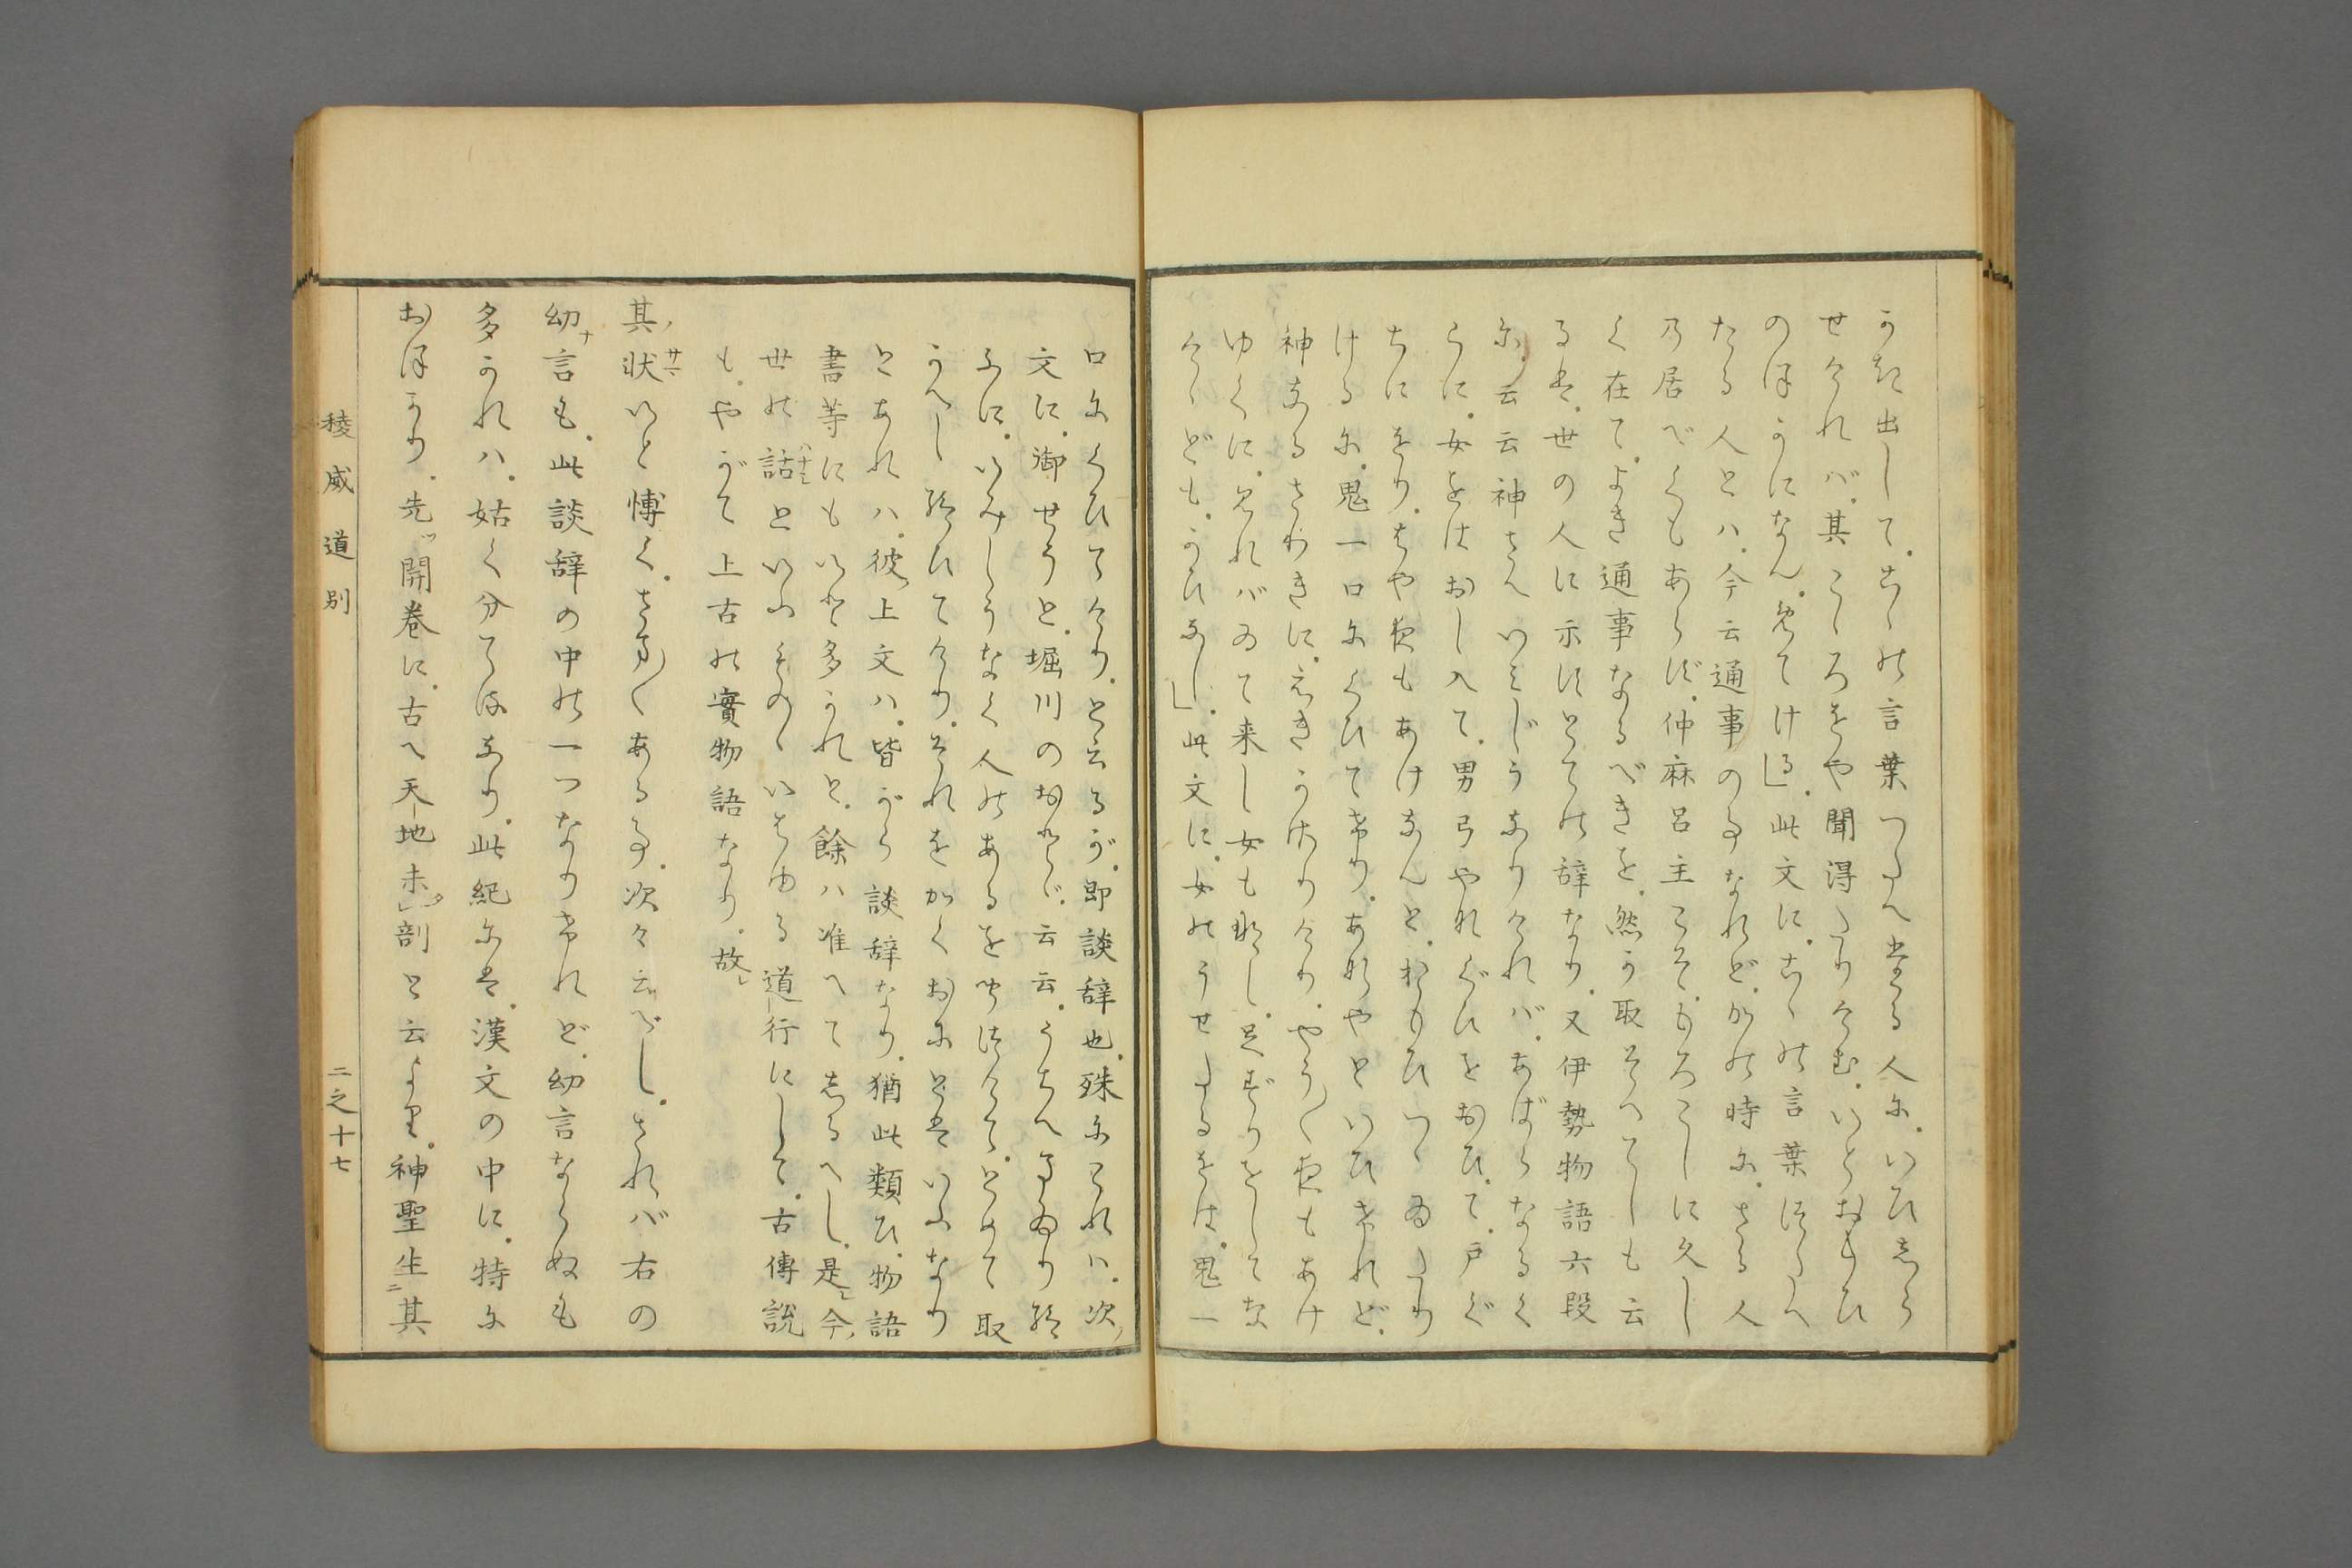 うた出して。こゝの言葉つたへたる人に。いひしら
せければ。其こゝろをや聞得たりけむ。いとおもひ
のほかになん。めでける」。此文に。こゝの言葉つたへ
たる人とハ。今云通事の事なれど。かの時に。さる人
乃居べくもあらず。仲麻呂主こそ。もろこしに久し
く在て。よき通事なるべきを。然か取そへてしも云
るは。世の人に示すとての辞なり。又伊勢物語六段
に。云云神さへいみじうなりければ。あばらなるく
らに。女をはおし入て。男弓やなぐひをおひて。戸ぐ
ちにをり。はや夜もあけなんと。おもひつゝゐたり
けるに。鬼一口にくひてけり。あなやといひけれど。
神なるさわきに。えきかさりけり。やう〳〵夜もあけ
ゆくに。見れバゐて来し女もなし。足ずりをしてな
けゝども。かひなし」。此文に。女のうせたるをは。鬼一
口にくひてけり。と云るが。即談辞也。殊にこれハ。次ノ
文に。御せうと。堀川のおとゞ。云云。うちへまゐり給
ふに。いみしうなく人のあるを聞つけて。とめて取
かへし給ひてけり。それをかくおにとはいふなり
とあれハ。彼ノ上文ハ。皆がら談辞なり。猶此類ひ。物語
書等にもいと多かれと。餘ハ准へて志るへし。是ヲ今ノ
世の話といふものゝいはゆる道行にして。古傳説
も。やがて上古の實物語なり。故レ
其ノ状いと博く。さま〳〵ある事。次々云べし。されバ右の
幼言も。此談辞の中の一つなりけれど。幼言ならぬも
多かれハ。姑く分てるなり。此紀には。漢文の中に。特に
おほかり。先ヅ開巻に。古ヘ天地未剖と云より。神聖生其
稜威道別
二之十七